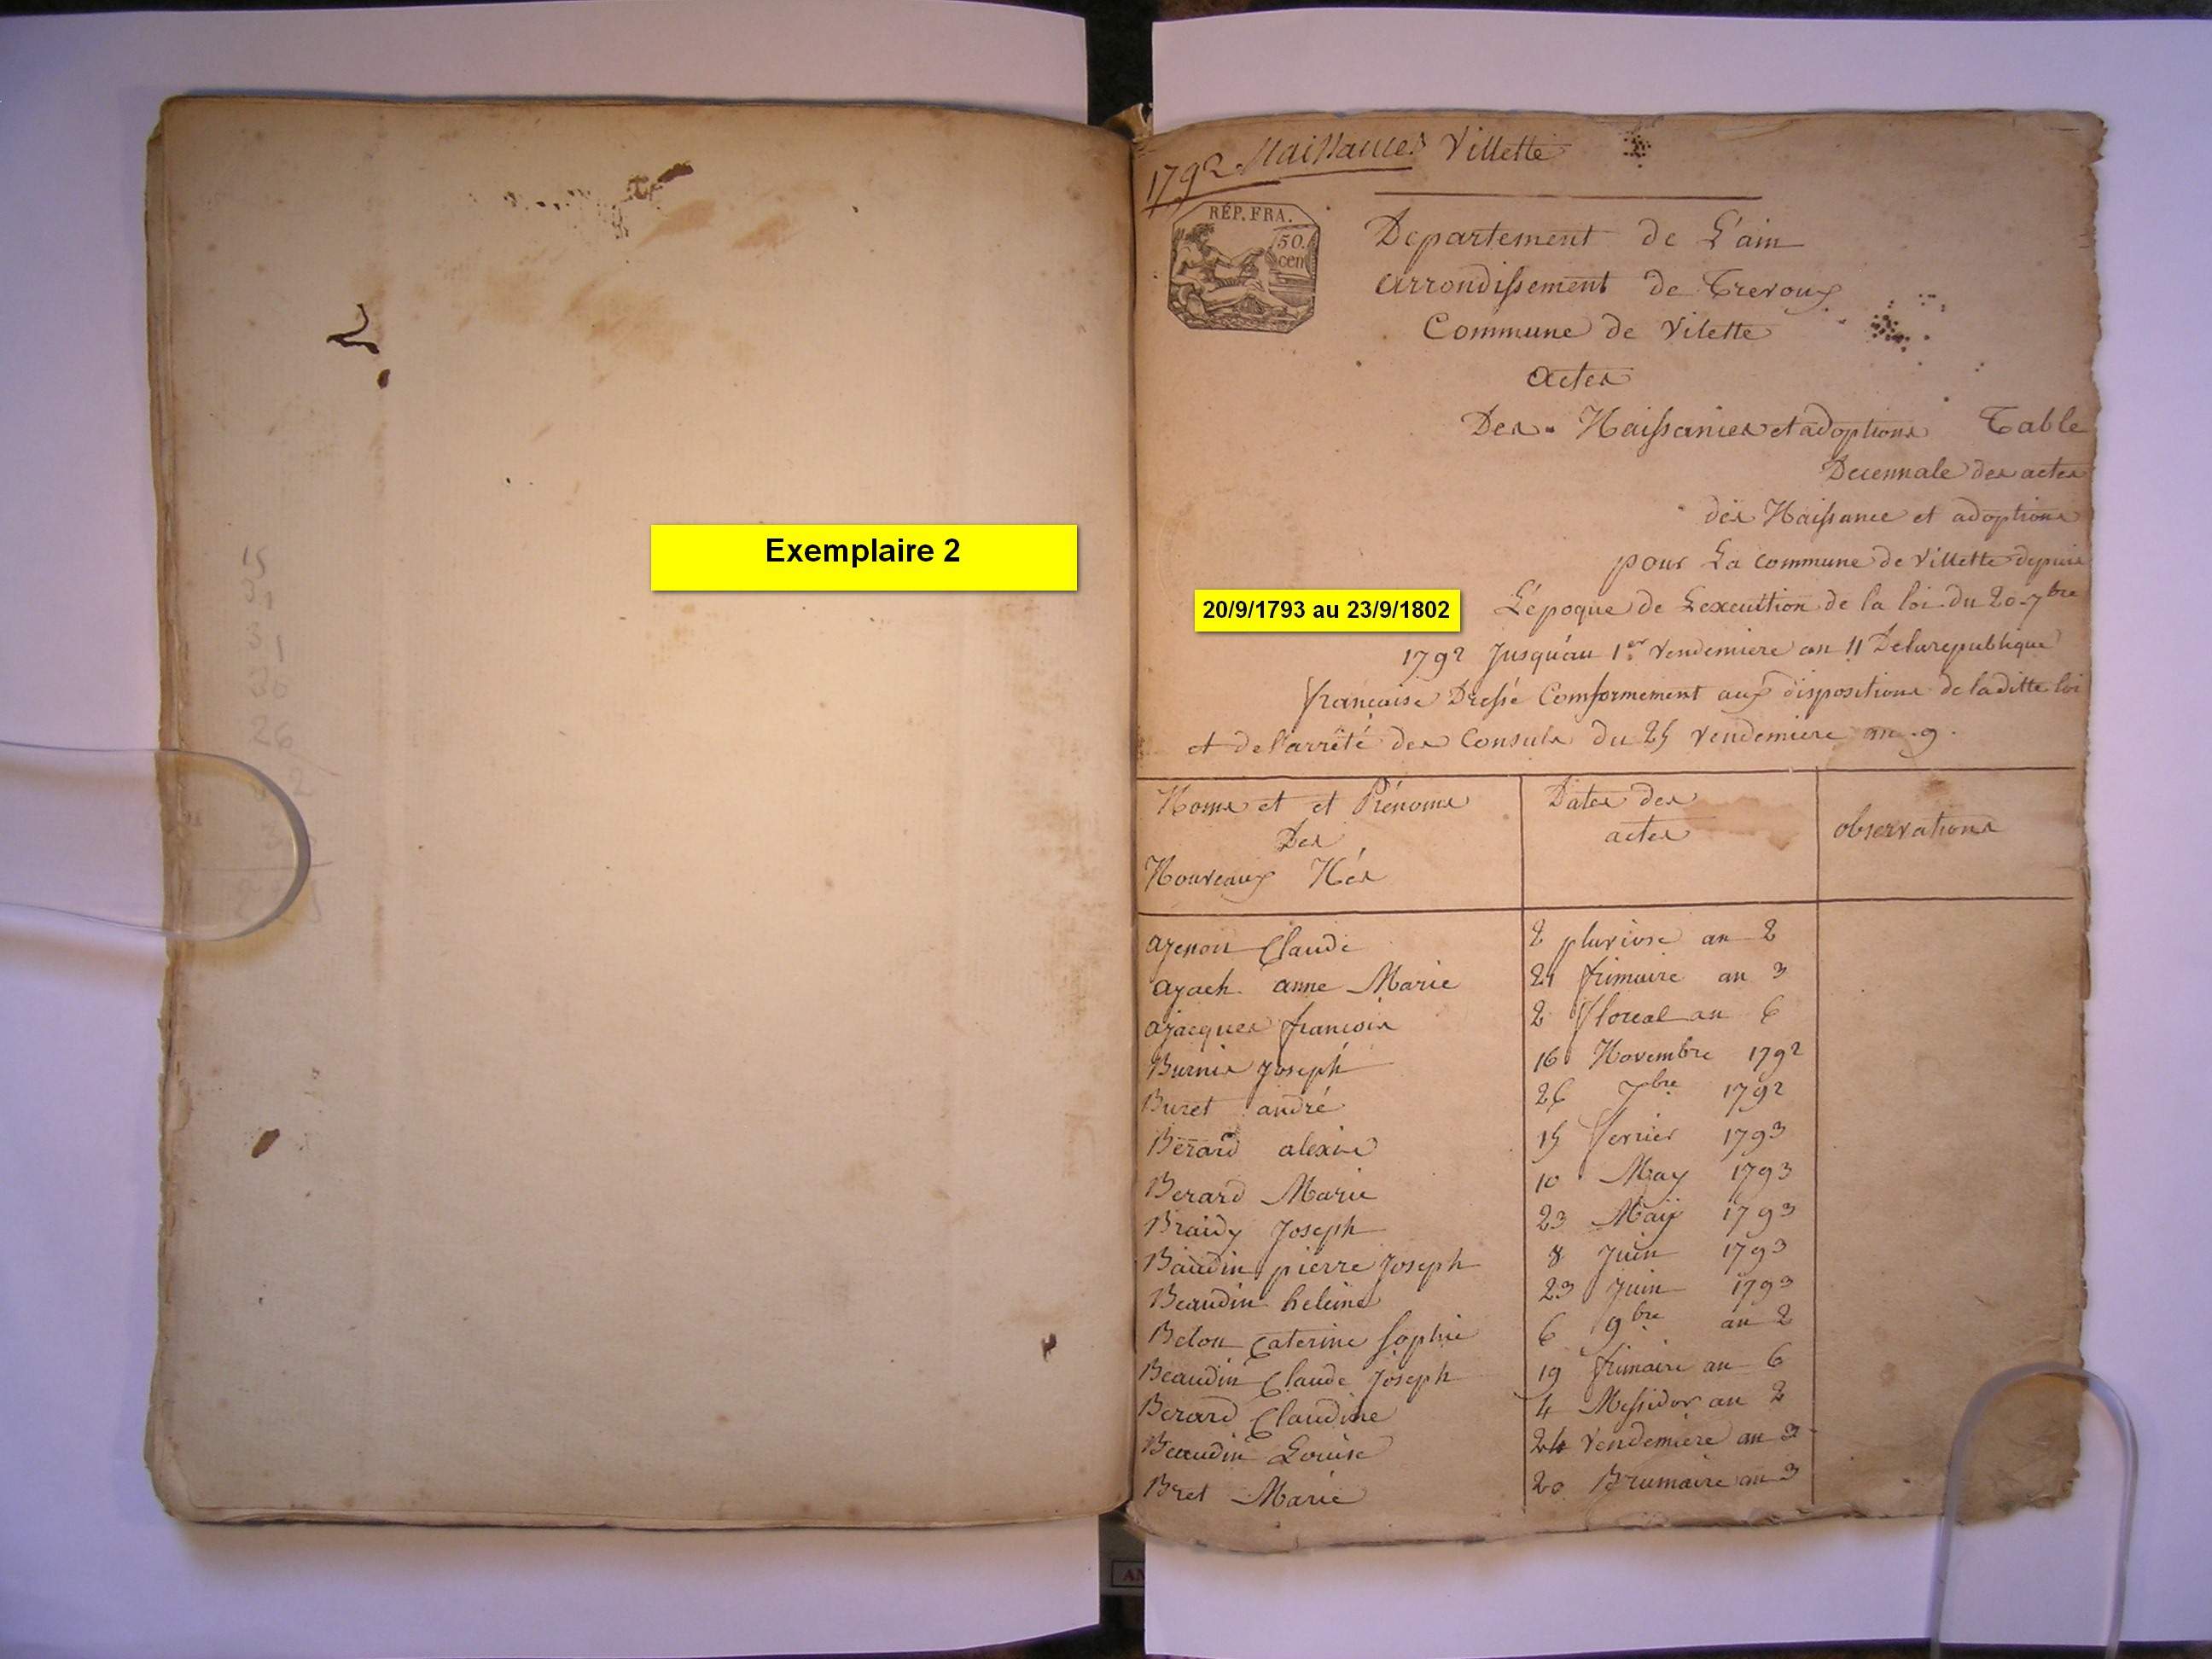 Exemplaire 2
15
31
26
1792 Naissances Villette
RÉP. FRA.
50
cen
Departement de L'ain
arrondissement de Trevoux
Commune de Vilette
actes
Des Naissances et adoptions Table
Decennale des actes
des Naissance et adoptions
pour La commune de Villette depuis
20/9/1793 au 23/9/1802
L'époque de Lexecution de la loi du 20 7bre
1792 Jusqu'au 1er Vendemiere an 11 De la republique
francaise Dressé Comformement aux dispositions de laditte loi
et de l'arrêté des Consuls du 25 Vendemiere an 9.
Noms et et Prénoms
Des
Nouveaux Nés
Dates des
actes
observations
Claude 2 pluviose an 2
anne Marie 21 frimaire an 3
ajacques francois 2 floreal an 6
Burnis Joseph 16 Novembre 1792
Buret andré 26 7bre 1792
Berard alexis 15 fevrier 1793
Berard Marie 10 May 1793
Braidy Joseph 23 Maÿ 1793
Baudin pierre Joseph 8 Juin 1793
Beaudin heleine 23 Juin 1793
Belon Caterine Sophie 6 9bre an 2
Beaudin Claude Joseph 19 frimaire an 6
Berard Claudine 4 Messidor an 2
Beaudin Louise 24 Vendemiere an 3
Bret Marie 20 Brumaire an 3